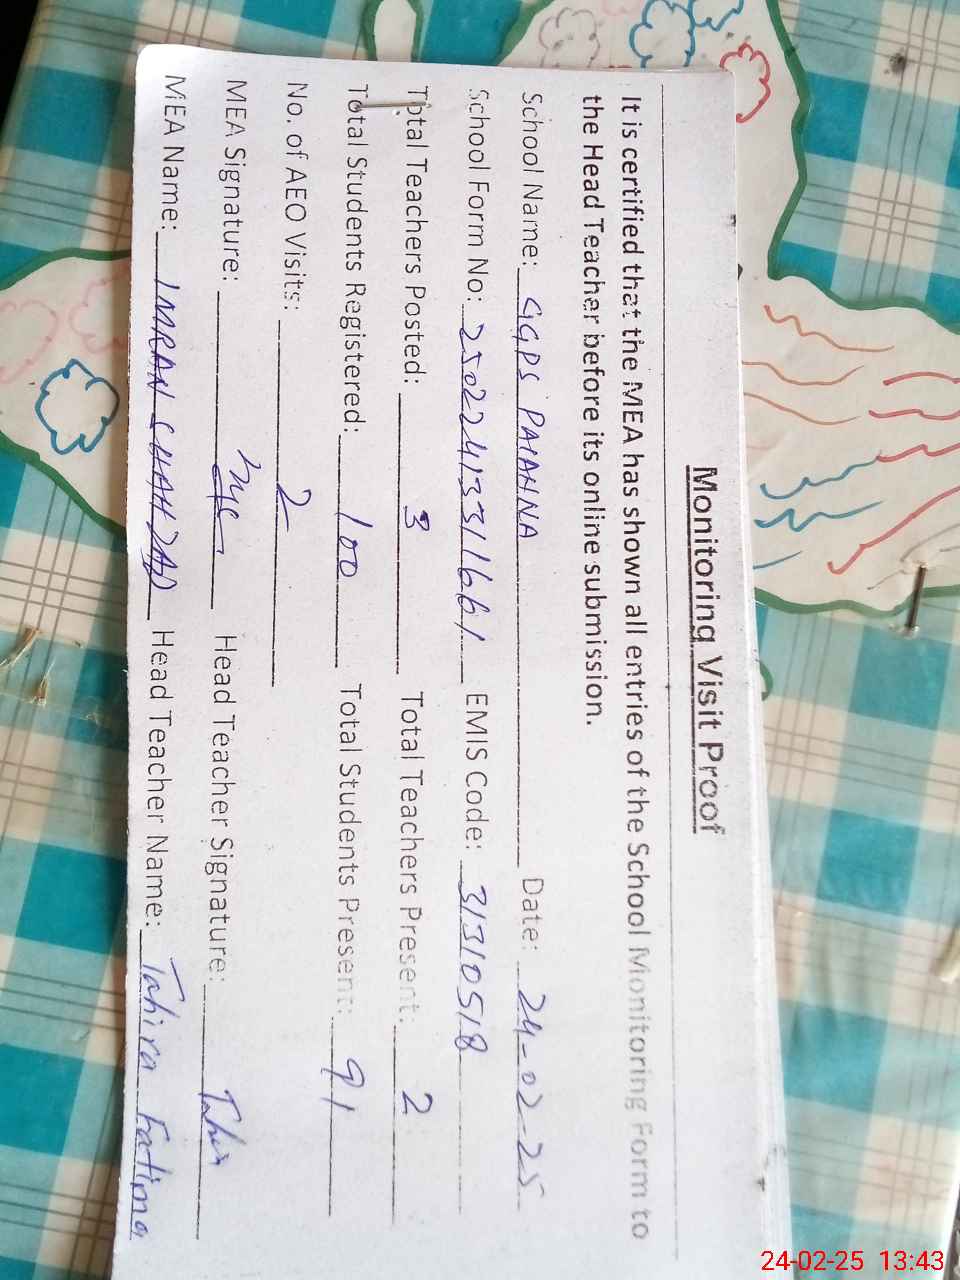 Monitoring Visit Proof
It is certified that the MEA has shown all entries of the School Monitoring Form to
the Head Teacher before its online submission.
School Name: GGPS PAIANNA Date: 24-02-25
School Form No: 25022413316661 EMIS Code: 31310518
Total Teachers Posted: 3 Total Teachers Present: 2
Total Students Registered: 100 Total Students Present: 91
No. of AEO Visits: 2
MEA Signature: Head Teacher Signature:
MEA Name: IMRAN SHAHZAD Head Teacher Name: Tahira Fatima
24-02-25 13:43